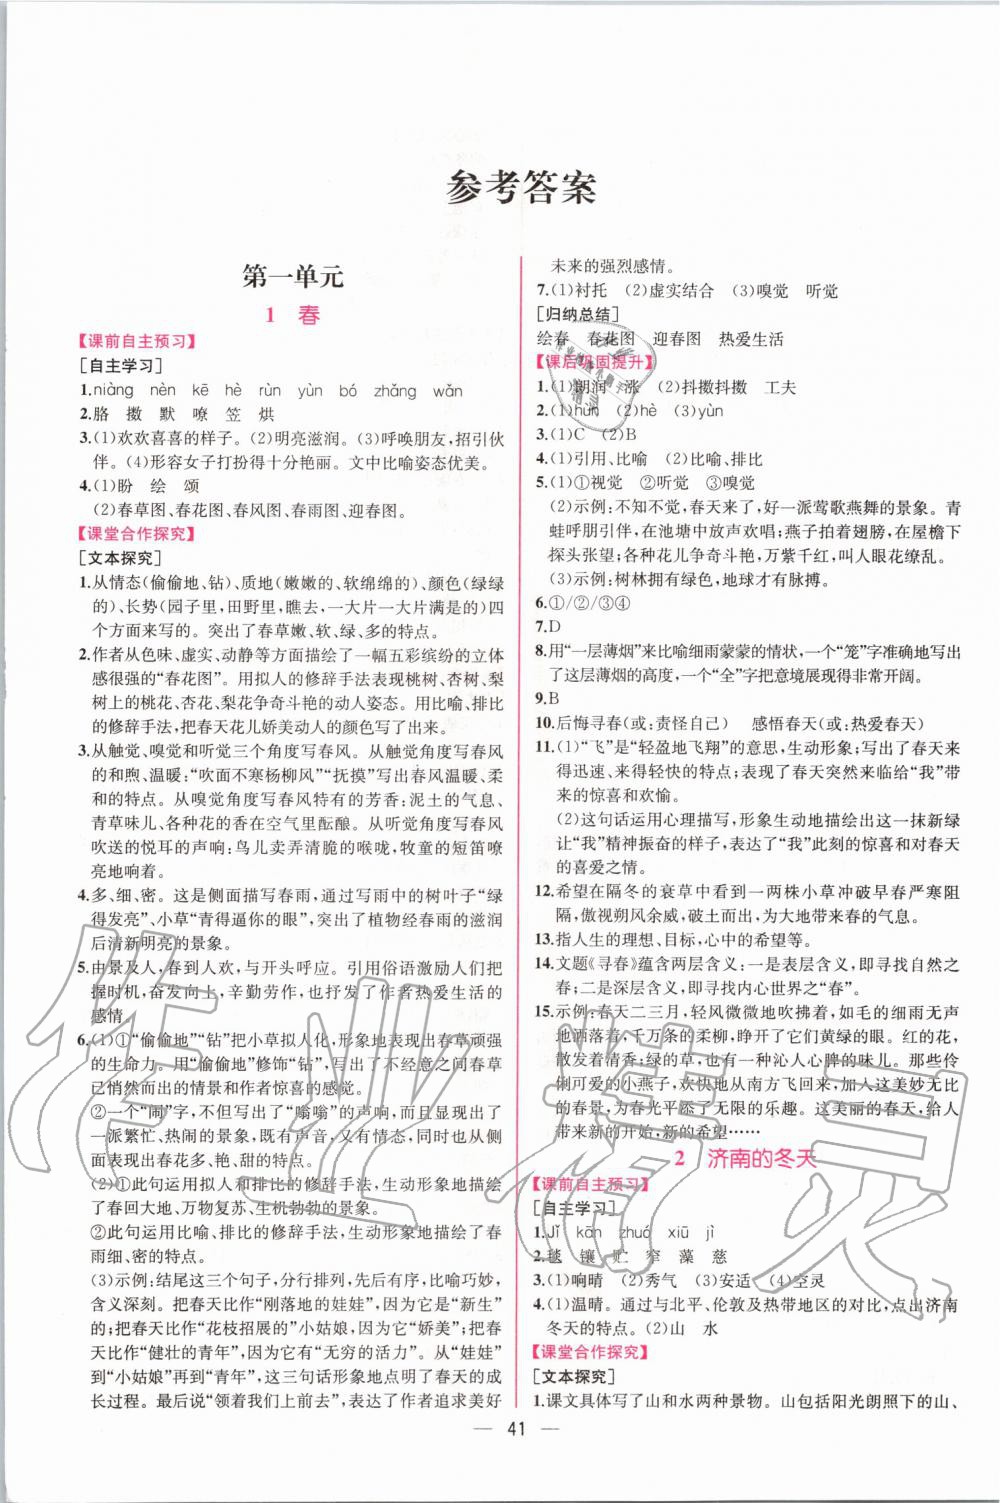 参考答案
第一单元
1 春
【课前自主预习】
[自主学习]
1.niàng nèn kē hè rùn yùn bó zhǎng wǎn
2.胳 撒 默 嘹 笠 烘
3.(1)欢欢喜喜的样子。(2)明亮滋润。(3)呼唤朋友,招引伙
伴。(4)形容女子打扮得十分艳丽。文中比喻姿态优美。
4.(1)盼 绘 颂
(2)春草图、春花图、春风图、春雨图、迎春图。
【课堂合作探究】
[文本探究]
1.从情态(偷偷地、钻)、质地(嫩嫩的、软绵绵的)、颜色(绿绿
的)、长势(园子里,田野里,瞧去,一大片一大片满是的)四
个方面来写的。突出了春草嫩、软、绿、多的特点。
2.作者从色味、虚实、动静等方面描绘了一幅五彩缤纷的立体
感很强的“春花图”。用拟人的修辞手法表现桃树、杏树、梨
树上的桃花、杏花、梨花争奇斗艳的动人姿态。用比喻、排比
的修辞手法,把春天花儿娇美动人的颜色写了出来。
3.从触觉、嗅觉和听觉三个角度写春风。从触觉角度写春风
的和煦、温暖:“吹面不寒杨柳风”“抚摸”写出春风温暖、柔
和的特点。从嗅觉角度写春风特有的芳香:泥土的气息、
青草味儿、各种花的香在空气里酝酿。从听觉角度写春风
吹送的悦耳的声响:鸟儿卖弄清脆的喉咙,牧童的短笛嘹
亮地响着。
4.多、细、密。这是侧面描写春雨,通过写雨中的树叶子“绿
得发亮”、小草“青得逼你的眼”,突出了植物经春雨的滋润
后清新明亮的景象。
5.由景及人,春到人欢,与开头呼应。引用俗语激励人们把
握时机,奋发向上,辛勤劳作,也抒发了作者热爱生活的
感情。
6.(1)①“偷偷地”“钻”把小草拟人化,形象地表现出春草顽强
的生命力。用“偷偷地”修饰“钻”,写出了不经意之间春草
已悄然而出的情景和作者惊喜的感觉。
②一个“闹”字,不但写出了“嗡嗡”的声响,而且显现出了
一派繁忙、热闹的景象,既有声音,又有情态,同时也从侧
面表现出春花多、艳、甜的特点。
(2)①此句运用拟人和排比的修辞手法,生动形象地描绘了
春回大地、万物复苏、生机勃勃的景象。
②此句运用比喻、排比的修辞手法,生动形象地描绘了春
雨细、密的特点。
(3)示例:结尾这三个句子,分行排列,先抑后扬,比喻巧妙,
含义深刻。把春天比作“刚落地的娃娃”,突出了它是“新生”
的;把春天比作“花枝招展的”小姑娘,突出了它“娇美”;把
春天比作“健壮的青年”,突出它“有无穷的活力”。从“娃娃”
到“小姑娘”再到“青年”,这三句话形象地说明了春天的成
长过程。最后说“领着我们上前去”,表达了作者追求美好
未来的强烈感情。
7.(1)衬托 (2)虚实结合 (3)嗅觉 听觉
[归纳总结]
绘春 春花图 迎春图 热爱生活
【课后巩固提升】
1.(1)朗润 涨 (2)抖擞抖擞 工夫
2.(1)hùn (2)hè (3)yùn
3.(1)C (2)B
4.(1)引用、比喻 (2)比喻、排比
5.(1)①视觉 ②听觉 ③嗅觉
(2)示例:不知不觉,春天来了,好一派莺歌燕舞的景象。青
蛙呼朋引伴,在池塘中放声欢唱;燕子拍着翅膀,在屋檐下
探头张望;各种花儿争奇斗艳,万紫千红,叫人眼花缭乱。
(3)示例:树林拥有绿色,地球才有脉搏。
6.①/②/③④
7.D
8.用“一层薄烟”来比喻细雨蒙蒙的情状,一个“笼”字准确地写出
了这层薄烟的高度,一个“全”字把意境展现得非常开阔。
9.B
10.后悔寻春(或:责怪自己) 感悟春天(或:热爱春天)
11.(1)“飞”是“轻盈地飞翔”的意思,生动形象;写出了春天来
得迅速、来得轻快的特点;表现了春天突然来临给“我”带
来的惊喜和欢愉。
(2)这句话运用心理描写,形象生动地描绘出这一抹新绿
让“我”精神振奋的样子,表达了“我”此刻的惊喜和对春天
的喜爱之情。
12.希望在隔冬的衰草中看到一两株小草冲破早春严寒阻
隔,傲视朔风余威,破土而出,为大地带来春的气息。
13.指人生的理想、目标,心中的希望等。
14.文题《寻春》蕴含两层含义:一是表层含义,即寻找自然之
春;二是深层含义,即寻找内心世界之“春”。
15.示例:春天二三月,轻风微微地吹拂着,如毛的细雨无声
地洒落着,千万条的柔柳,睁开了它们黄绿的眼。红的花,
散发着清香;绿的草,也有一种沁人心脾的味儿。那些伶
俐可爱的小燕子,欢快地从南方飞回来,加入这美妙无比
的春景,为春光平添了无限的乐趣。这美丽的春天,给人
带来新的开始,新的希望……
2 济南的冬天
【课前自主预习】
[自主学习]
1.jǐ kān zhuó xiū jì
2.毯 镶 贮 窄 藻 慈
3.(1)响晴 (2)秀气 (3)安适 (4)空灵
4.(1)温晴。通过与北平、伦敦及热带地区的对比,点出济南
冬天的特点。(2)山 水
【课堂合作探究】
[文本探究]
1.课文具体写了山和水两种景物。山包括阳光朗照下的山、
41
作业精灵